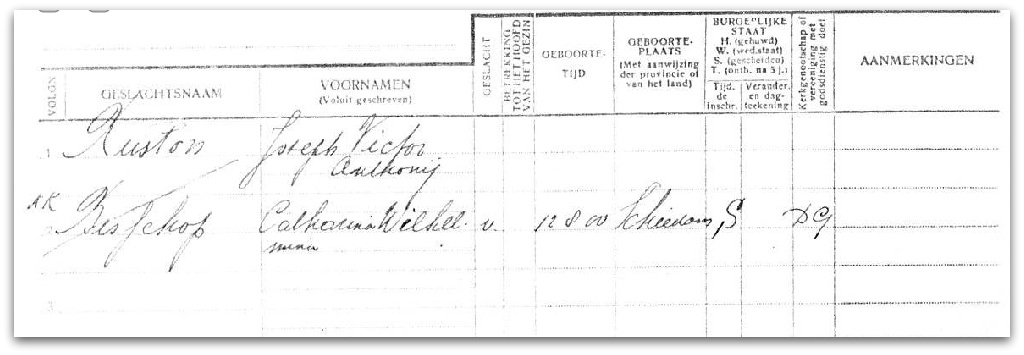 VOLGN.
GESLACHTSNAAM
VOORNAMEN
(Voluit geschreven)
GESLACHT
BETREKKING
TOT HET HOOFD
VAN HET GEZIN
GEBOORTE-
TIJD
GEBOORTE-
PLAATS
(Met aanwijzing
der provincie of
van het land)
BURGERLIJKE
STAAT
H. (gehuwd)
W. (wed.staat)
S. (gescheiden)
T. (ontb. na 5 j.)
Tijd.
de
inschr.
Verander.
en dag-
teekening
Kerkgenootschap of
vereeniging met
godsdienstig doel
AANMERKINGEN
1 Ruston Joseph Victor
Anthonij
NK
2 Bisschop Catharina Wilhel- v. 12 8 00 Schiedam S DG
mina
3